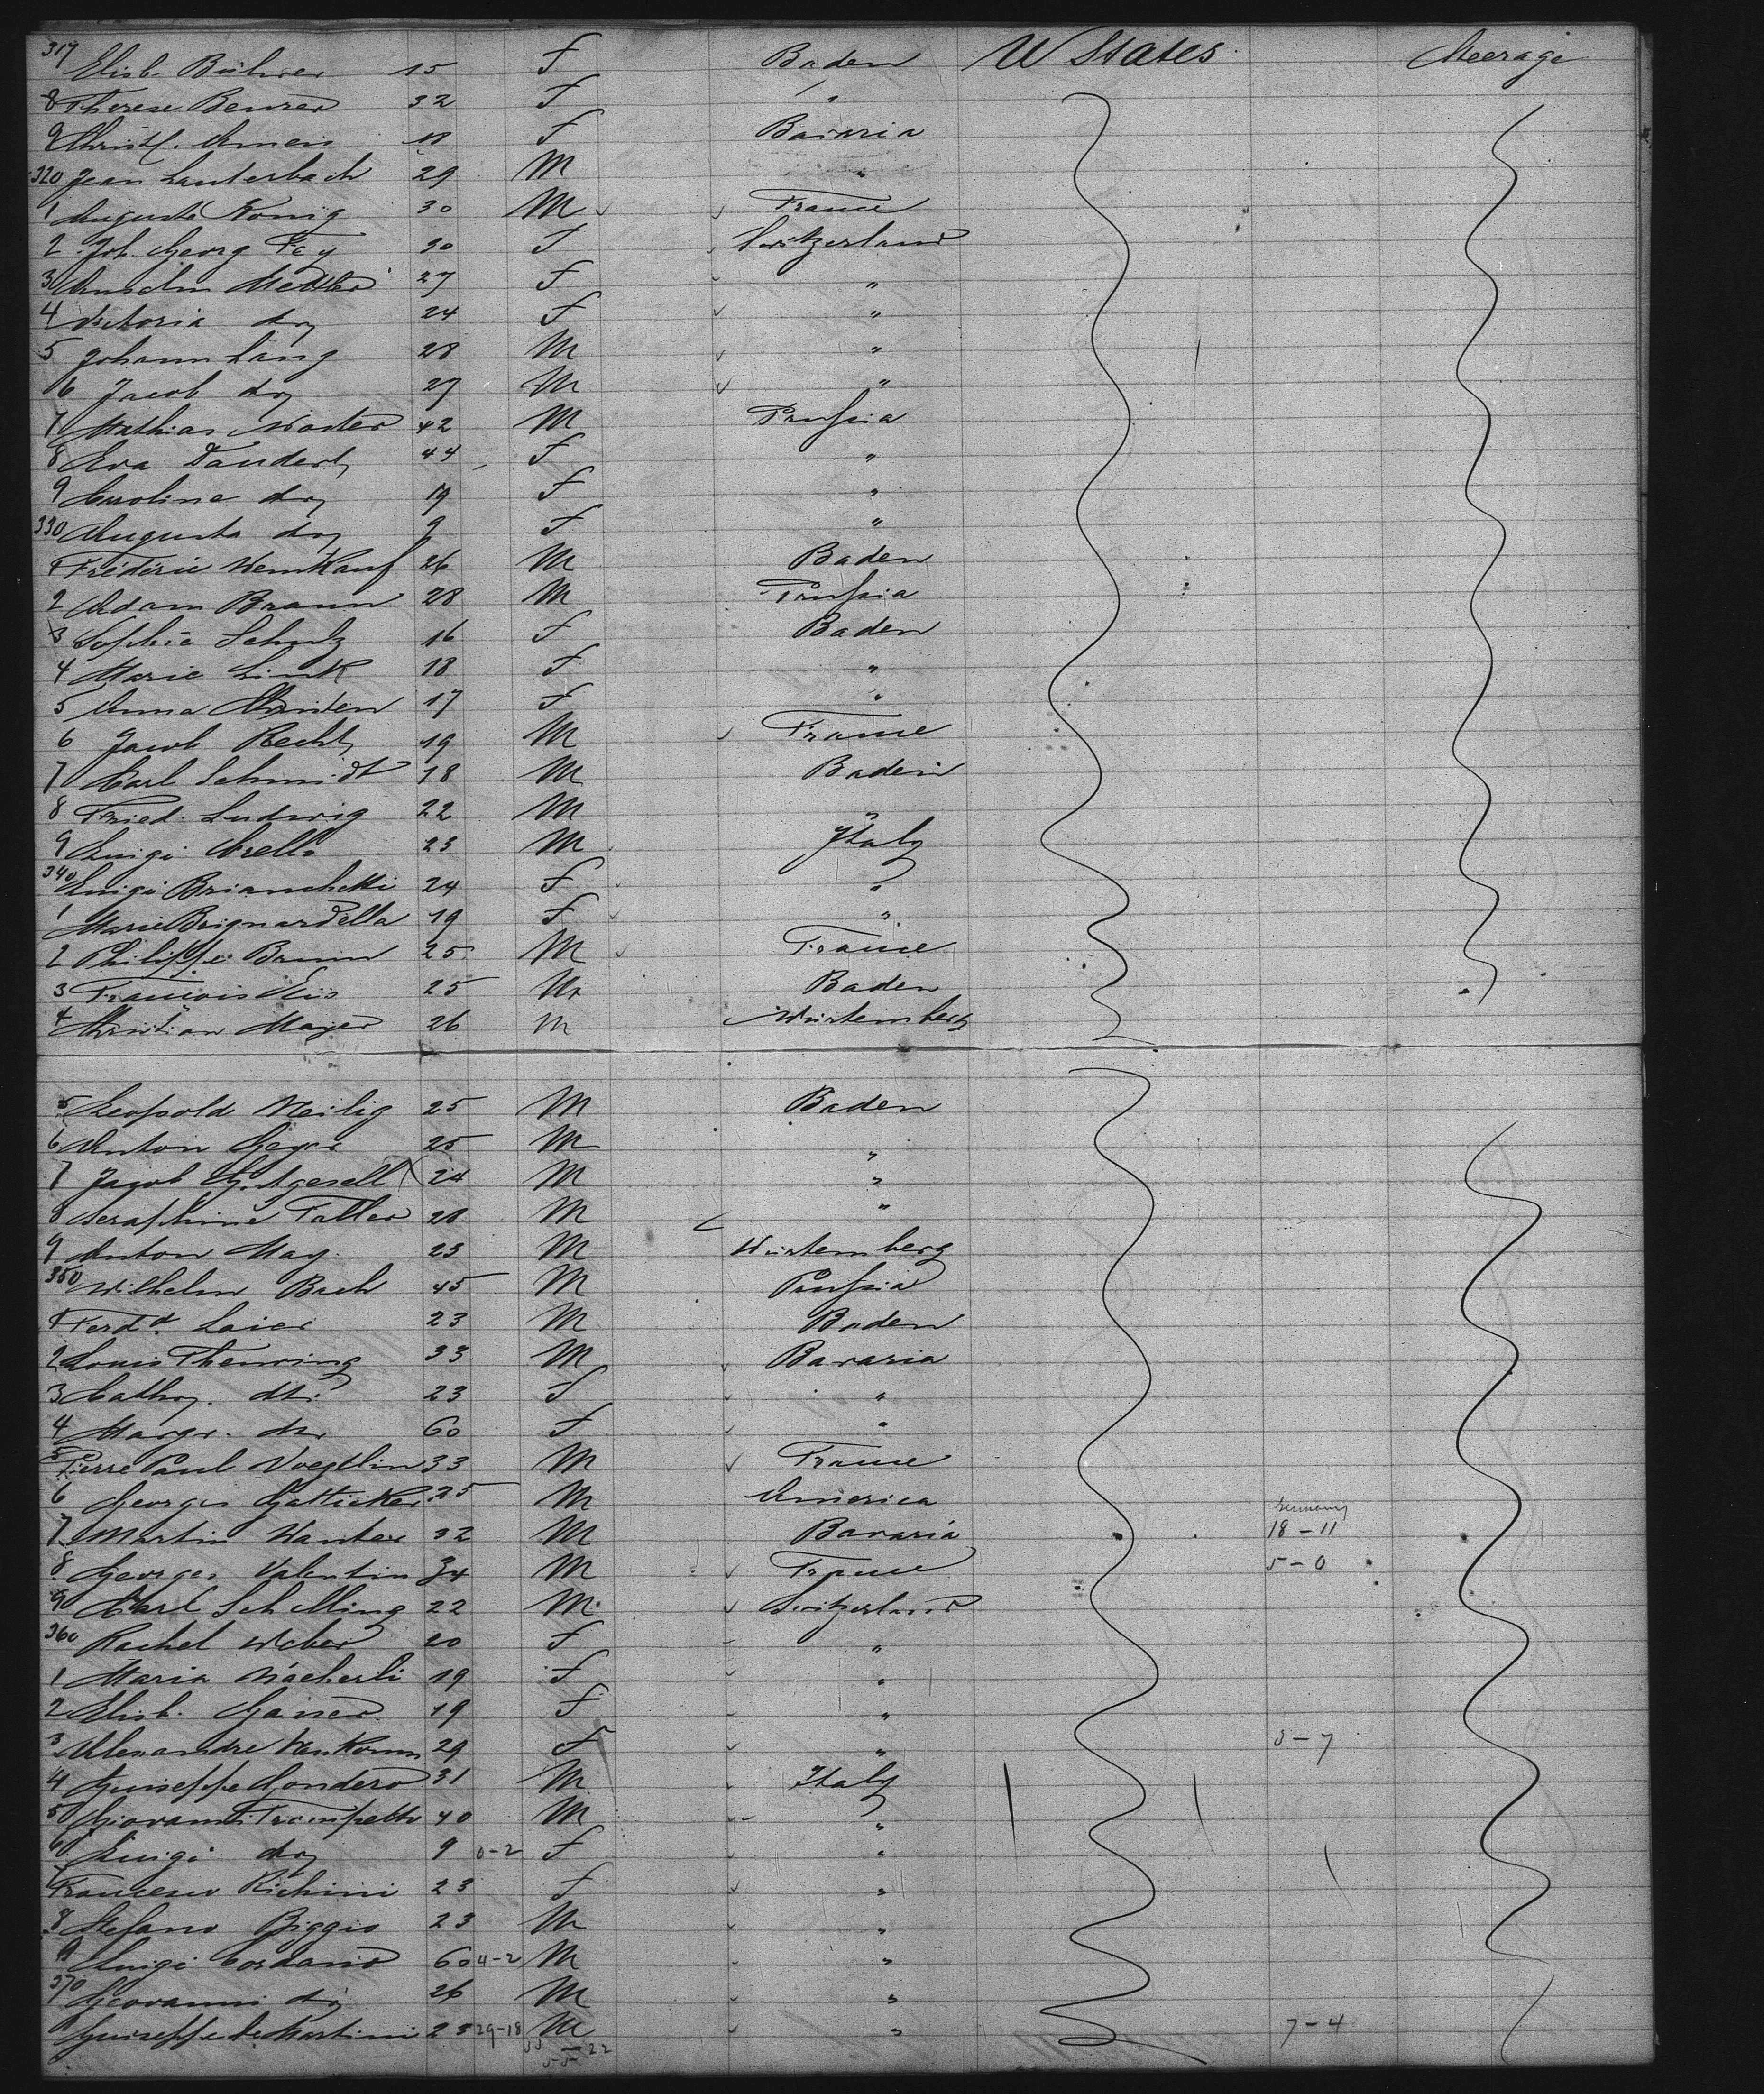 317 Elisb. Bührer 15 F Baden U States Steerage
8 Therese Benzer 32 F "
9 Christ. 18 F Bavaria
320 Jean Lauterbach 29 M "
1 Auguste König 30 M France
2 Joh. Georg Fey 30 F Switzerland
3 27 F "
4 Victoria do 24 F "
5 Johann Lang 28 M "
6 Jacob do 27 M "
7 Mathias 42 M Prussia
8 Eva 44 F "
9 Caroline do 19 F "
330 Augusta do 9 F "
1 Fréderic 26 M Baden
2 Adam Braun 28 M Prussia
3 Sophie Schulz 16 F Baden
4 Marie Link 18 F "
5 Anna Christen 17 F "
6 Jacob Recht 19 M France
7 Carl Schmidt 18 M Baden
8 Fried. Ludwig 22 M "
9 Luigi Crello 23 M Italy
340 Luigi Brianchetti 24 F "
1 Marie Brignardella 19 F "
2 Philippe Brunn 25 M France
3 Francois 25 M Baden
4 Christian Mayer 26 M Würtemberg
5 Leopold Heilig 25 M Baden
6 Anton Geyer 25 M "
7 Jacob 24 M "
8 Seraphine Faller 28 M "
9 Anton May 23 M Würtemberg
350 Wilhelm Bach 45 M Prussia
1 Ferdd. Laier 23 M Baden
2 Louis Thenring 33 M Bavaria
3 Cath. dto 23 F "
4 Margr. do 60 F "
5 Pierre Paul Voegtlin 33 M France
6 Georges Gatticker 25 M America
Germany
7 Martin Wanter 32 M Bavaria 18-11
8 Georges Valentin 34 M France 5-0
9 Carl Schilling 22 M Switzerland
360 Rachel Weber 20 F "
1 Maria Wächerli 19 F "
2 Elisb. Gaiser 19 F "
3 Alexandre 29 F " 3-7
4 Guiseppe Gondero 31 M Italy
5 Giovanni Trompetto 40 M "
6 Luigi do 9 0-2 F "
7 Francesco Richini 23 F "
8 Stefano Biggio 23 M "
9 Luigi Cordano 60 4-2 M "
370 Geovanni do 26 M "
1 Guiseppe de Martini 23 29-18 M " 7-4
33 — 22
55